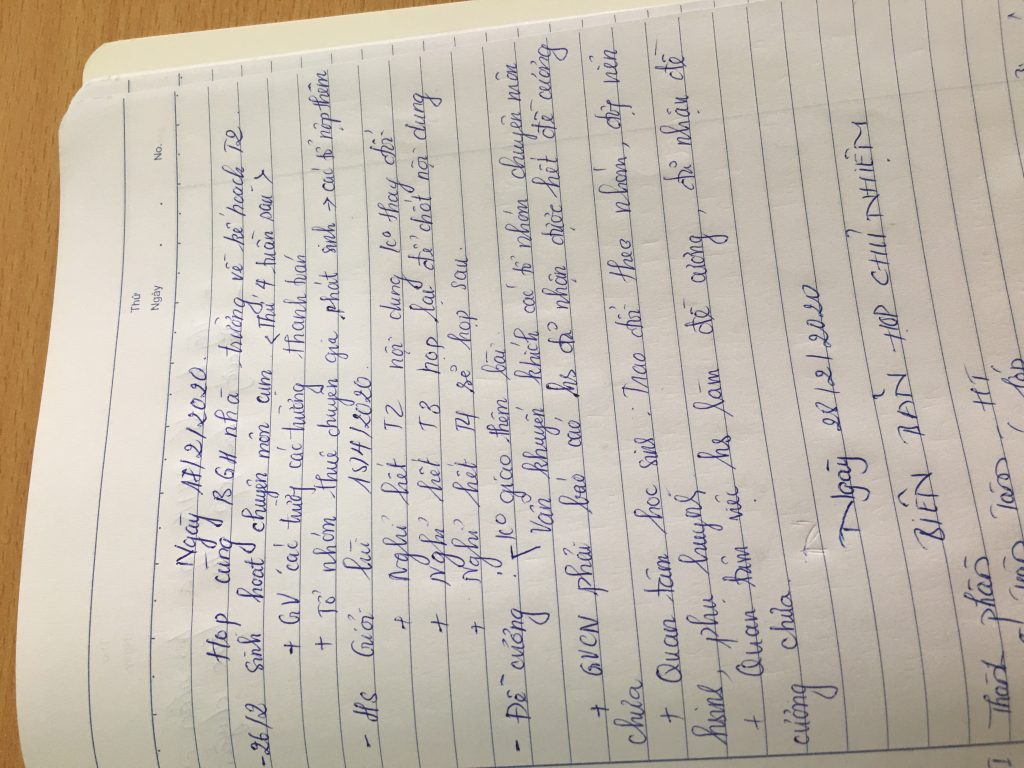 Thứ
Ngày . . No.
Ngày 17/2/2020
Họp cùng BGH nhà trường về kế hoạch T2
- 26/2 Sinh hoạt chuyên môn cụm < Thứ 4 tuần sau >
+ GV các trường các trường thanh toán
+ Tổ nhóm thuê chuyên gia phát sinh → các tổ nộp thêm
- HS Cuối lùi 15/4/2020
+ Nghỉ hết T2 nội dung ko thay đổi
+ Nghỉ hết T3 họp lại để chốt nội dung
+ Nghỉ hết T4 sẽ họp sau
- Đề cương ko giao thêm bài
Vẫn khuyến khích các tổ nhóm chuyên môn
+ GVCN phải báo cáo hs đã nhận được hết đề cương
chưa
+ Quan tâm học sinh: Trao đổi theo nhóm, động viên
hsinh, phụ huynh
+ Quan tâm việc hs làm đề cương, đã nhận đề
cương chưa
Ngày 28/2/2020
BIÊN BẢN HỌP CHỦ NHIỆM
I Thành phần